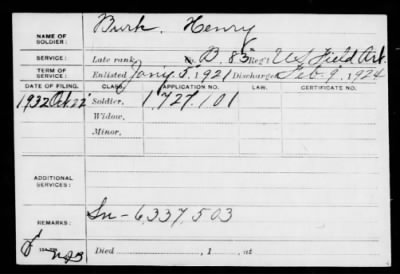 NAME OF SOLDIER: Burk, Henry
SERVICE: Late rank, Co. B, 83 Reg't US Field Art.
TERM OF SERVICE: Enlisted Jany 5, 1921 Discharged Feb. 9, 1924
DATE OF FILING. CLASS. APPLICATION NO. LAW. CERTIFICATE NO.
1932 Oct 22 Soldier. 1727101
Widow.
Minor.
ADDITIONAL SERVICES:
REMARKS: Sn-6337503
Died , 1 , at